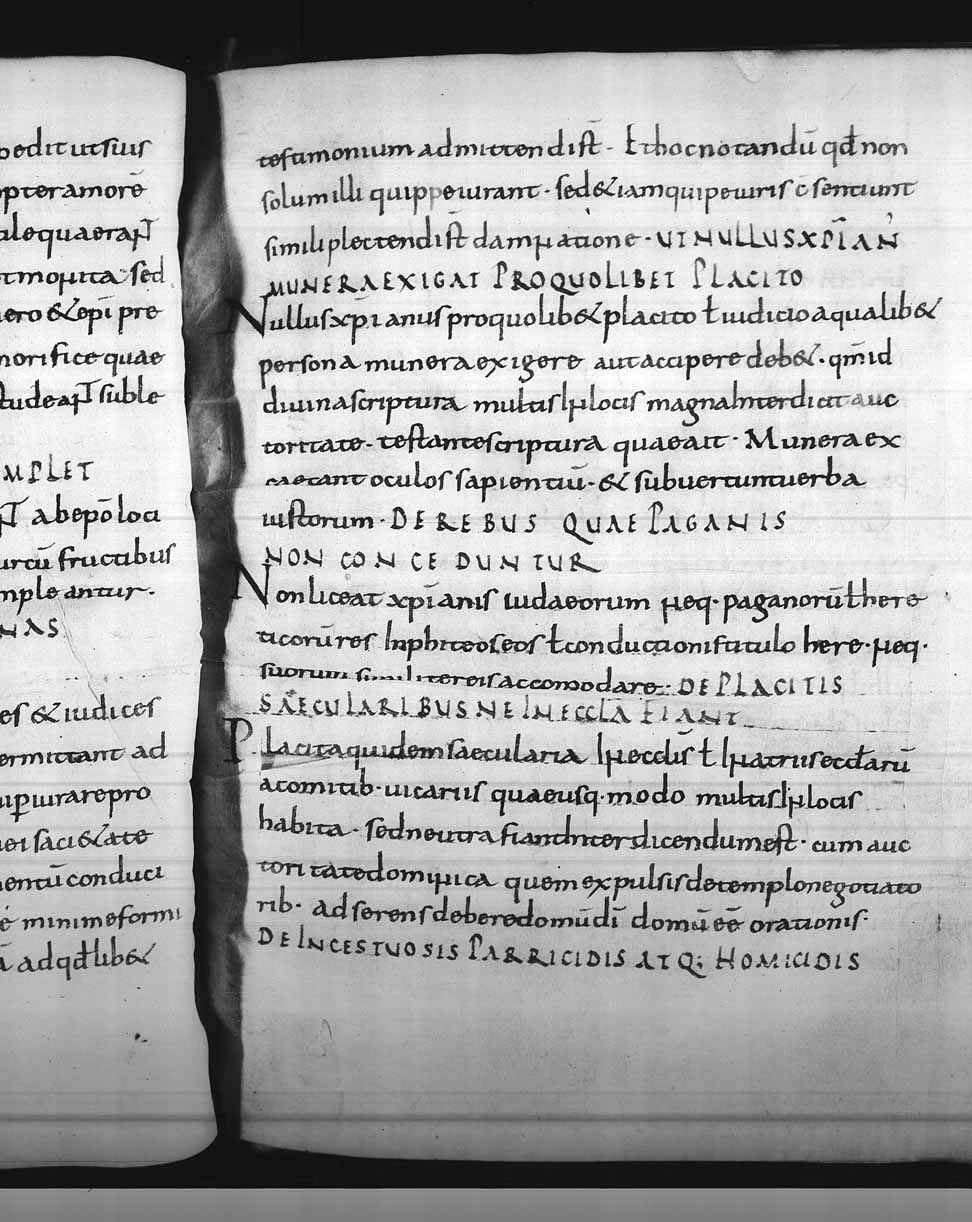 pedit ut suis
opter amorē
ale quaerat̄
t monita sed
ero & epī pre
norifice quae
tudeat̄ suble
MPLET
ab epō loci
urtū fructibus
mpleantur.
NAS
es & iudices
ermittant ad
up̱iurare pro
ei faci&ate
entū conduci
é minime formi
ā ad qđ lib&
testimonium admittendi st̄ · Et hoc notandū qđ non
solum illi qui ppeiurant · sed & iam qui peiuris c̄sentiunt
simili plectendi st̄ damnatione · UT NULLUS XP̄IAN'
MUNERA EXIGAT PRO QUOLIBET PLACITO
Nullus xp̄ianus pro quolib& placito ł iudicio a qualib&
persona munera exigere aut accipere deb& · qm̄ id
diuina scriptura multis In locis magna Interdicit auc
toritate · testante scriptura quae ait · Munera ex
caecant oculos sapientiū · & subuertunt uerba
iustorum · DE REBUS QUAE PAGANIS
NON CONCEDUNTUR
Non liceat xp̄ianis iudaeorum neq · paganorū ł here
ticorū res Inphiteoseos ł conductionis titulo here · neq ·
suorum similiter eis accomodare · DE PLACITIS
SAECULARIBUS NE IN ECCLĀ FIANT
Placita quidem saecularia In ecclīs ł In atriis ecclārū
a comitib · uicariis quae usq · modo multis In locis
habita · sed ne ultra fiant Interdicendum est · cum auc
toritate dominica quem expulsis de templo negotiato
rib · adserens debere domū dī domū eē orationis ·
DE INCESTUOSIS PARRICIDIS ATQ; HOMICIDIS